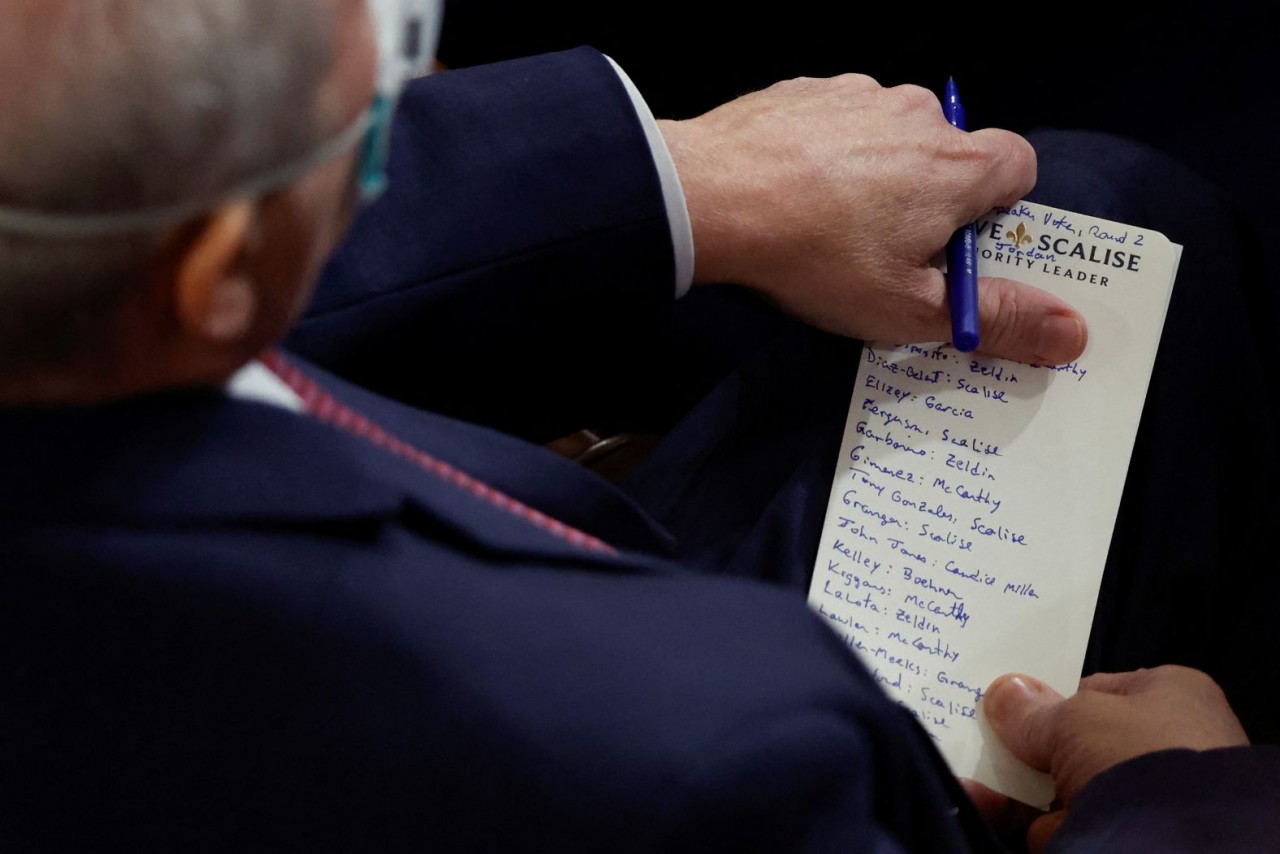 Speaker Votes, Round 2
VE SCALISE
Jordan
ORITY LEADER
Zeldin
Diaz-Balart: Scalise
Ellzey: Garcia
Ferguson, Scalise
Garbarino: Zeldin
Gimenez: McCarthy
Tony Gonzales, Scalise
Granger: Scalise
John James: Candice Miller
Kelley: Boehner
Kiggans: McCarthy
LaLota: Zeldin
Lawler: McCarthy
ller-Meeks: Grang
ford: Scalise
alise